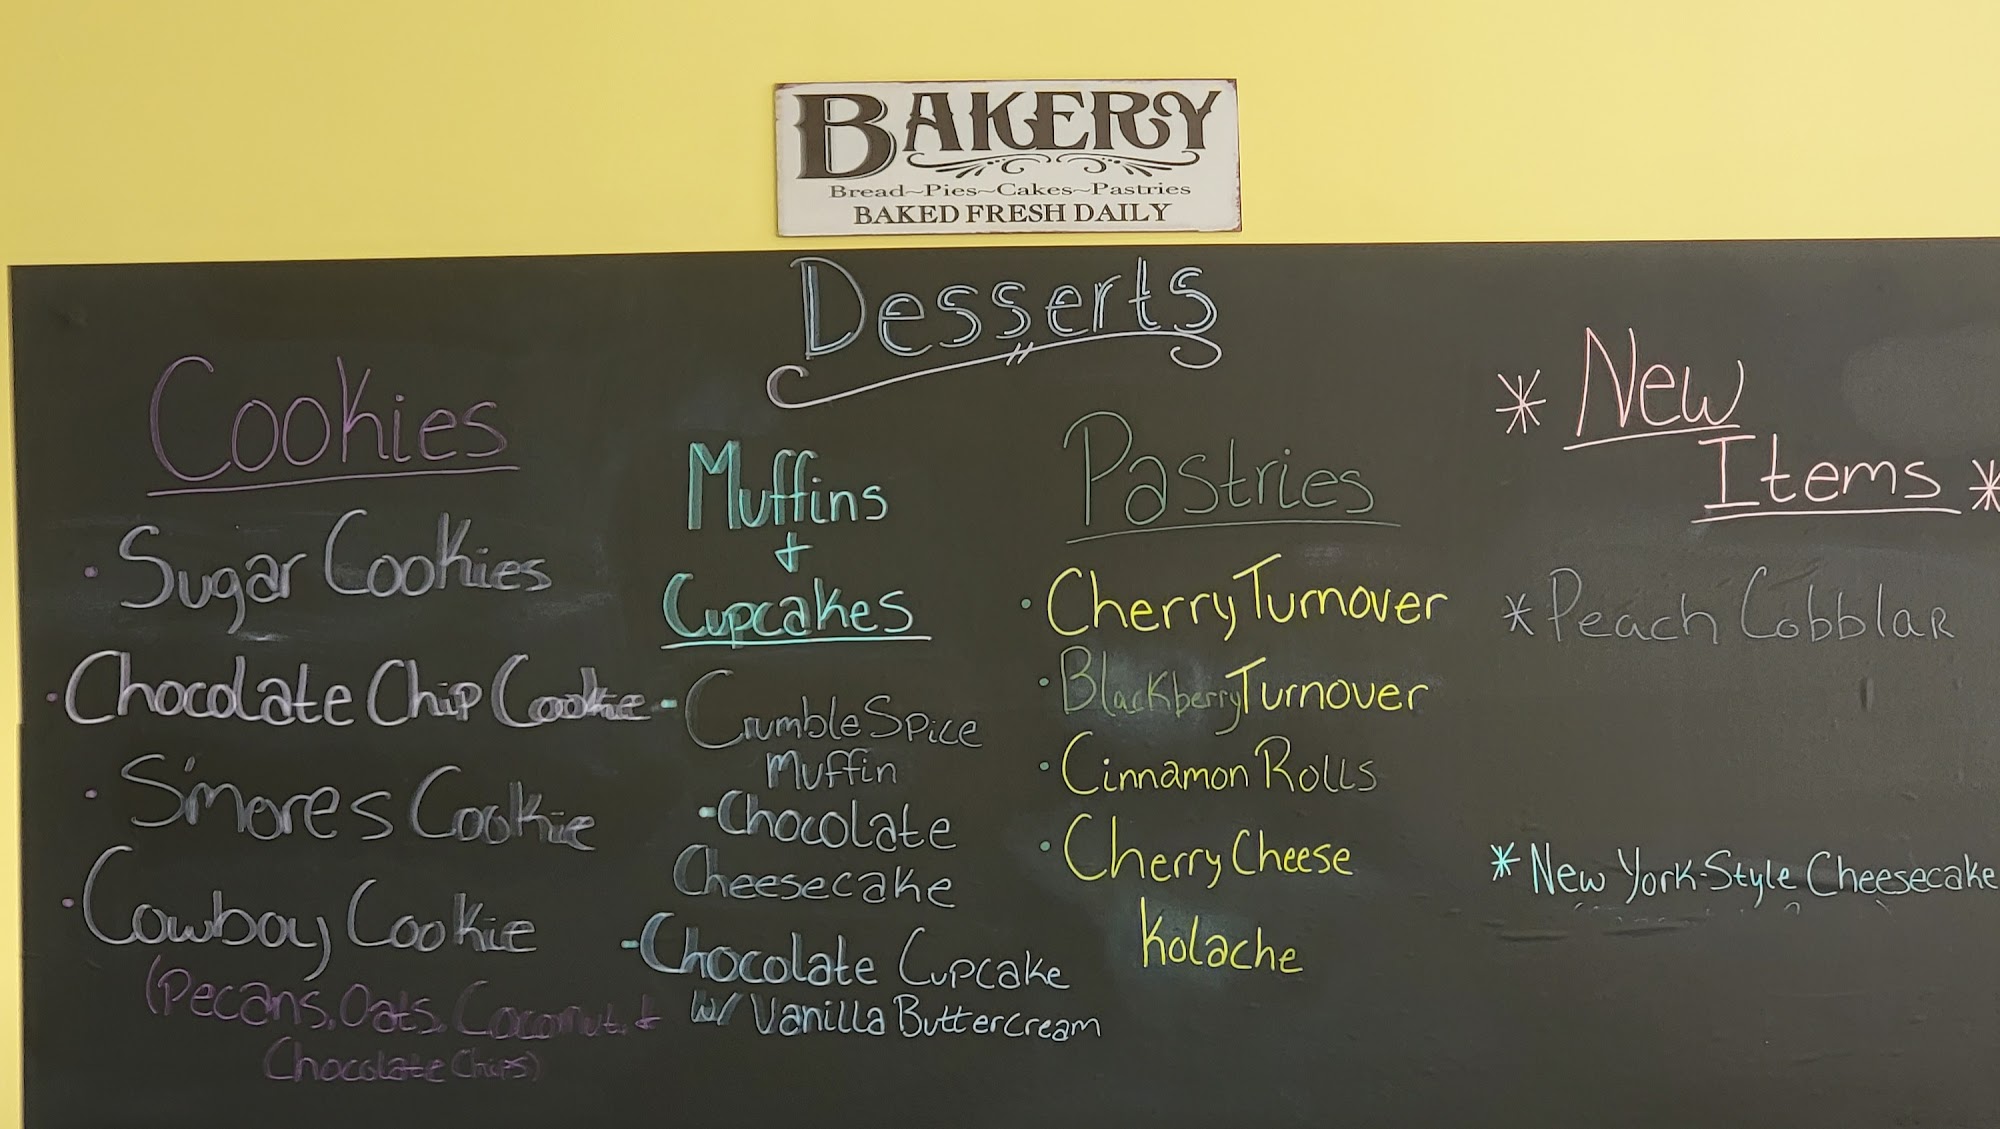 BAKERY
Bread~Pies~Cakes~Pastries
BAKED FRESH DAILY
Desserts
Cookies
· Sugar Cookies
· Chocolate Chip Cookie
· S'mores Cookie
· Cowboy Cookie
(Pecans, Oats, Coconut, +
Chocolate Chips)
Muffins
+
Cupcakes
- Crumble Spice
Muffin
- Chocolate
Cheesecake
- Chocolate Cupcake
w/ Vanilla Buttercream
Pastries
· Cherry Turnover
· Blackberry Turnover
· Cinnamon Rolls
· Cherry Cheese
Kolache
* New
Items *
* Peach Cobblar
* New York-Style Cheesecake